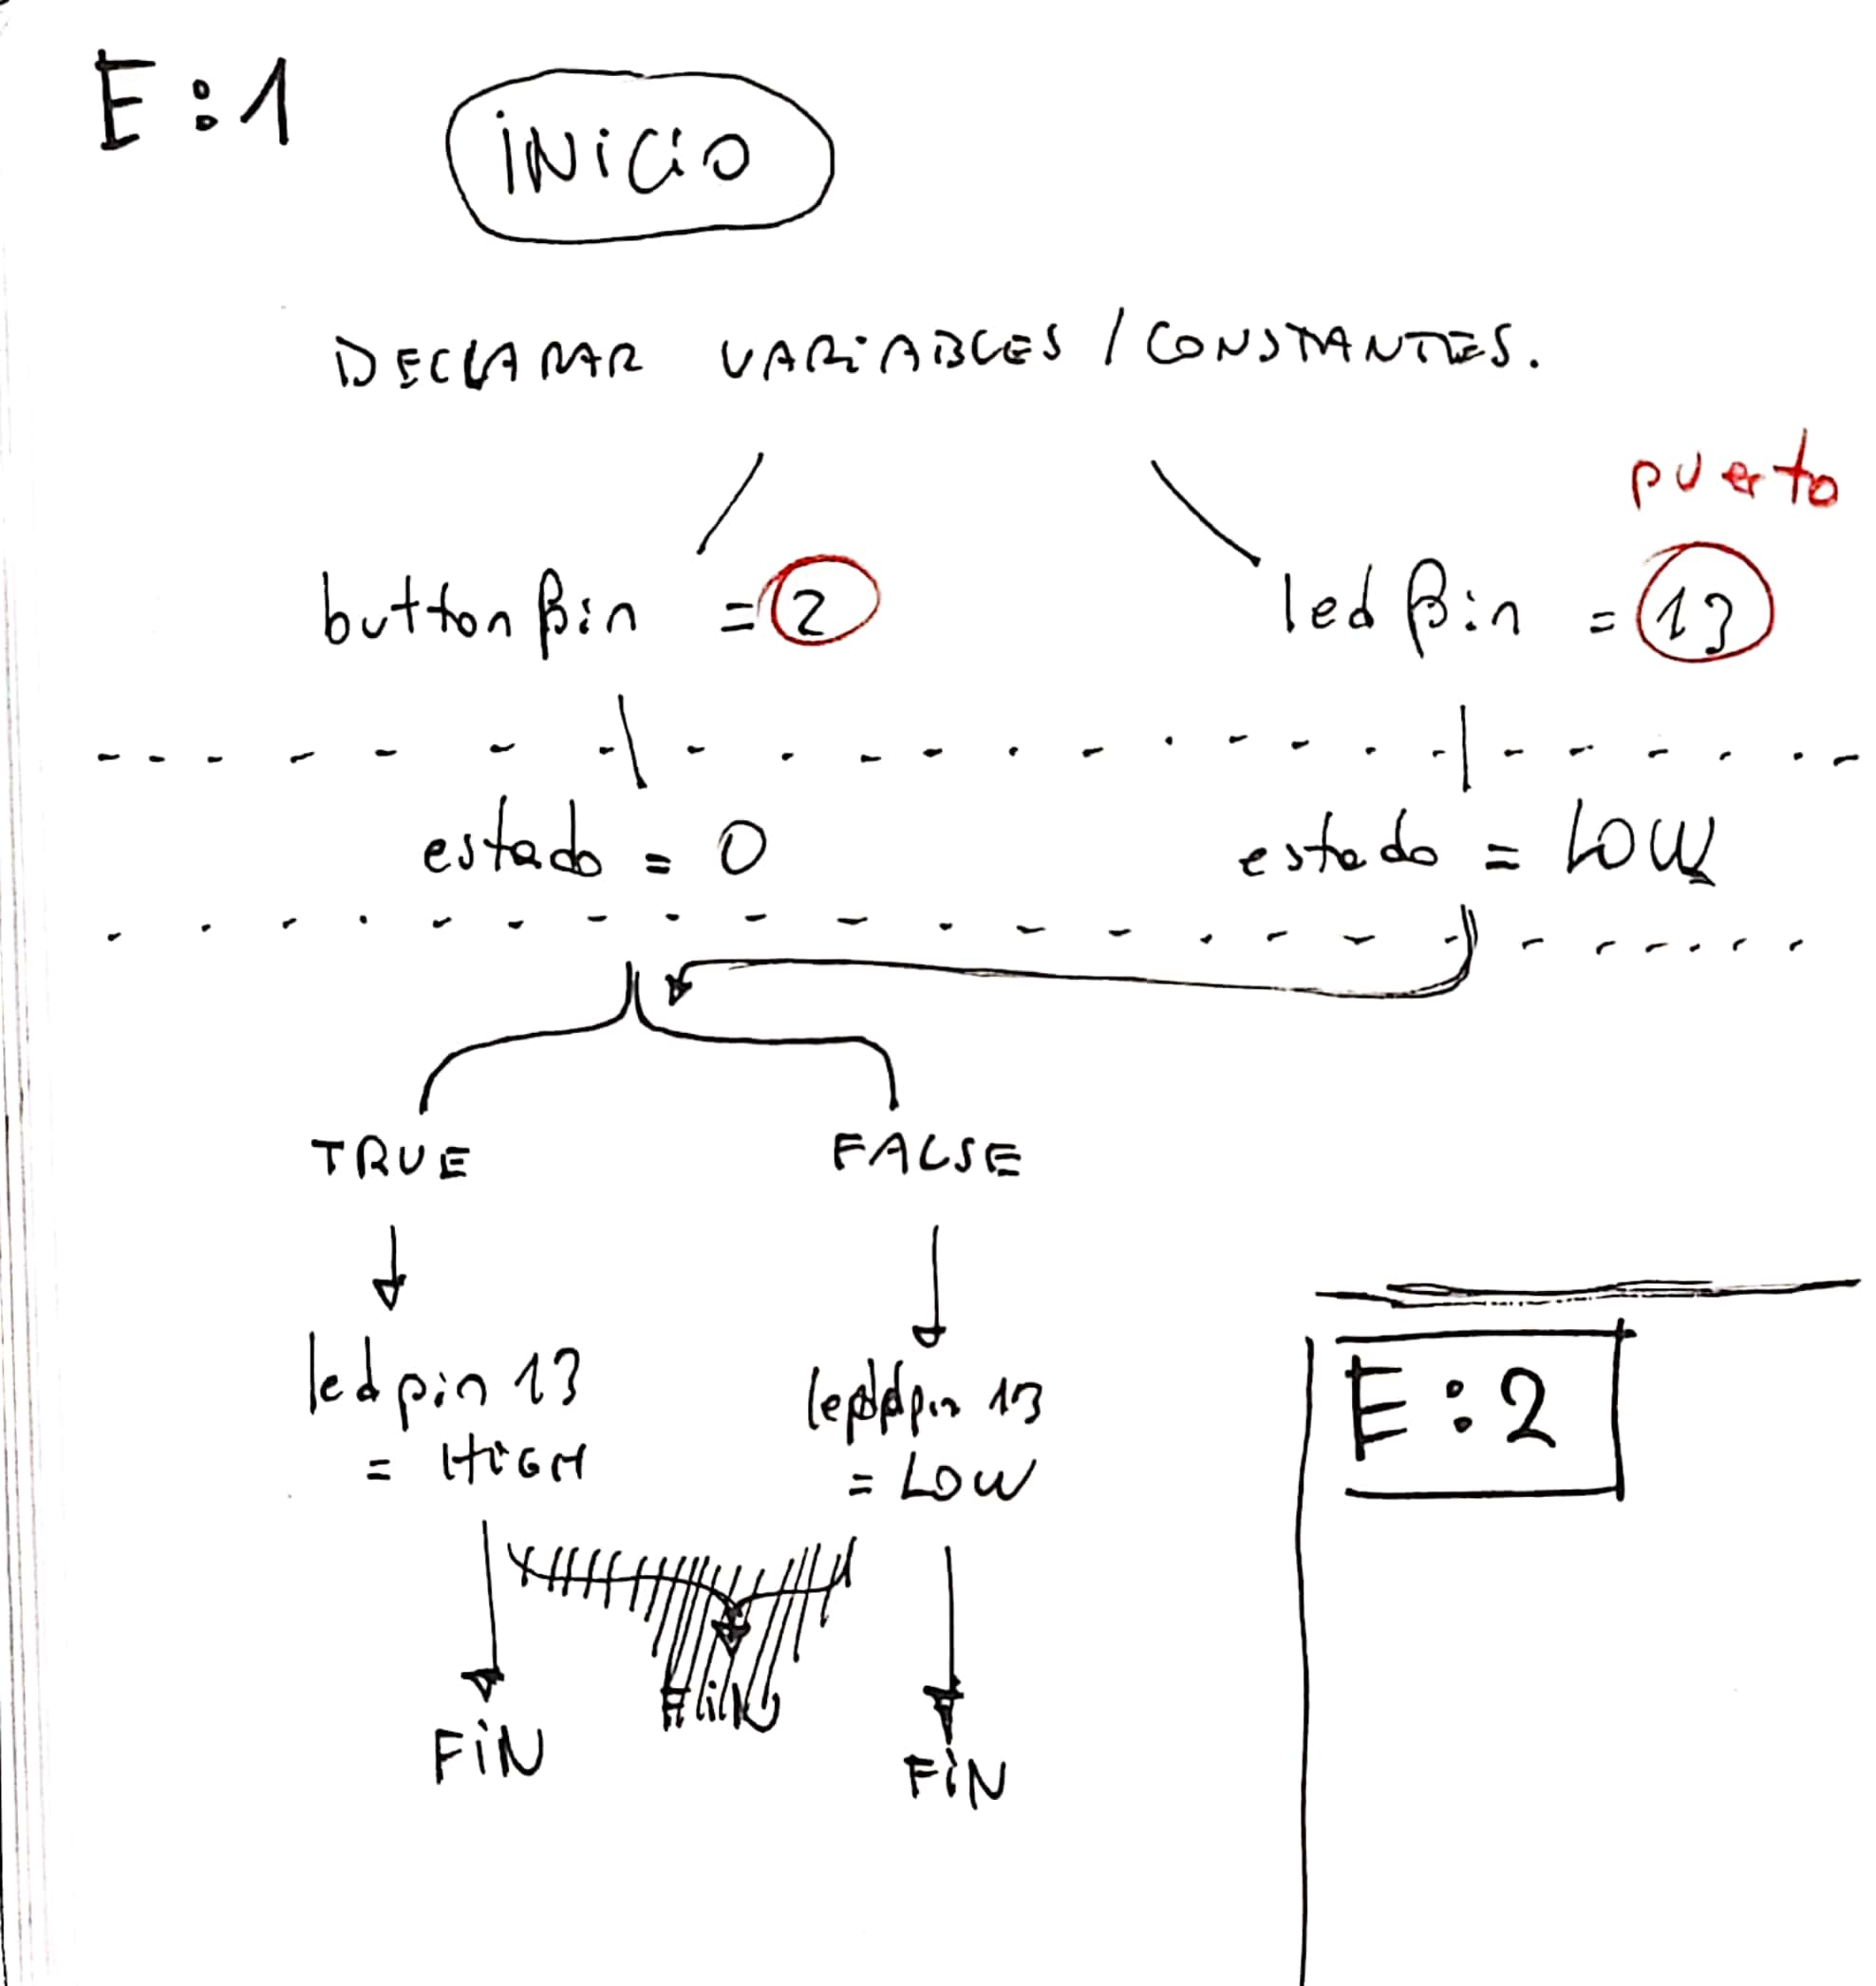 E:1
INICIO
DECLARAR VARIABLES / CONSTANTES.
puerto
buttonPin = 2
ledPin = 13
estado = 0
estado = LOW
TRUE
FALSE
ledpin 13
= HIGH
= LOW
E:2
FIN
FIN
FIN